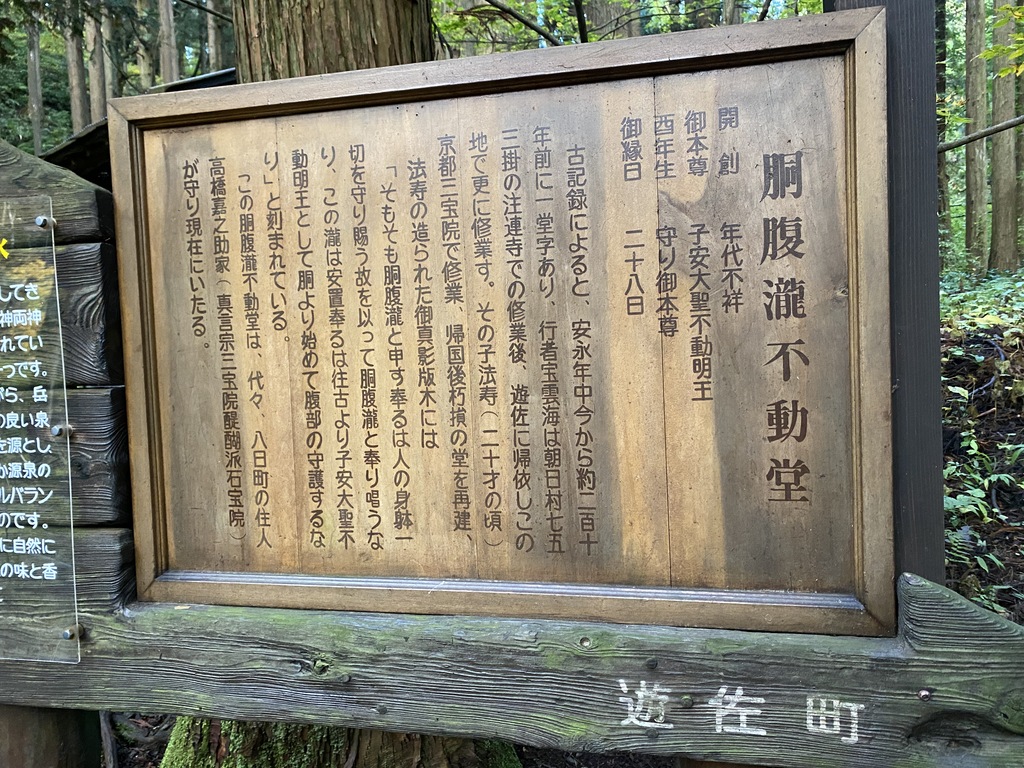 胴腹瀧不動堂
開創 年代不祥
御本尊 子安大聖不動明王
酉年生 守り御本尊
御縁日 二十八日
古記録によると、安永年中今から約二百十
年前に一堂字あり、行者宝雲海は朝日村七五
三掛の注連寺での修業後、遊佐に帰依しこの
地で更に修業す。その子法寿(二十才の頃)
京都三宝院で修業 帰国後朽損の堂を再建、
法寿の造られた御真影版木には
「そもそも胴腹瀧と申す奉るは人の身躰一
切を守り賜う故を以って胴腹瀧と奉り唱うな
り、この瀧は安置奉るは往古より子安大聖不
動明王として胴より始めて腹部の守護するな
り」と刻まれている。
「この胴腹瀧不動堂は、代々、八日町の住人
高橋嘉之助家(真言宗三宝院醍醐派石宝院)
が守り現在にいたる。
遊佐町
してき
神両神
れてい
つです。
がら、岳
の良い泉
を源とし、
か源泉の
ルバラン
のです。
に自然に
の味と香